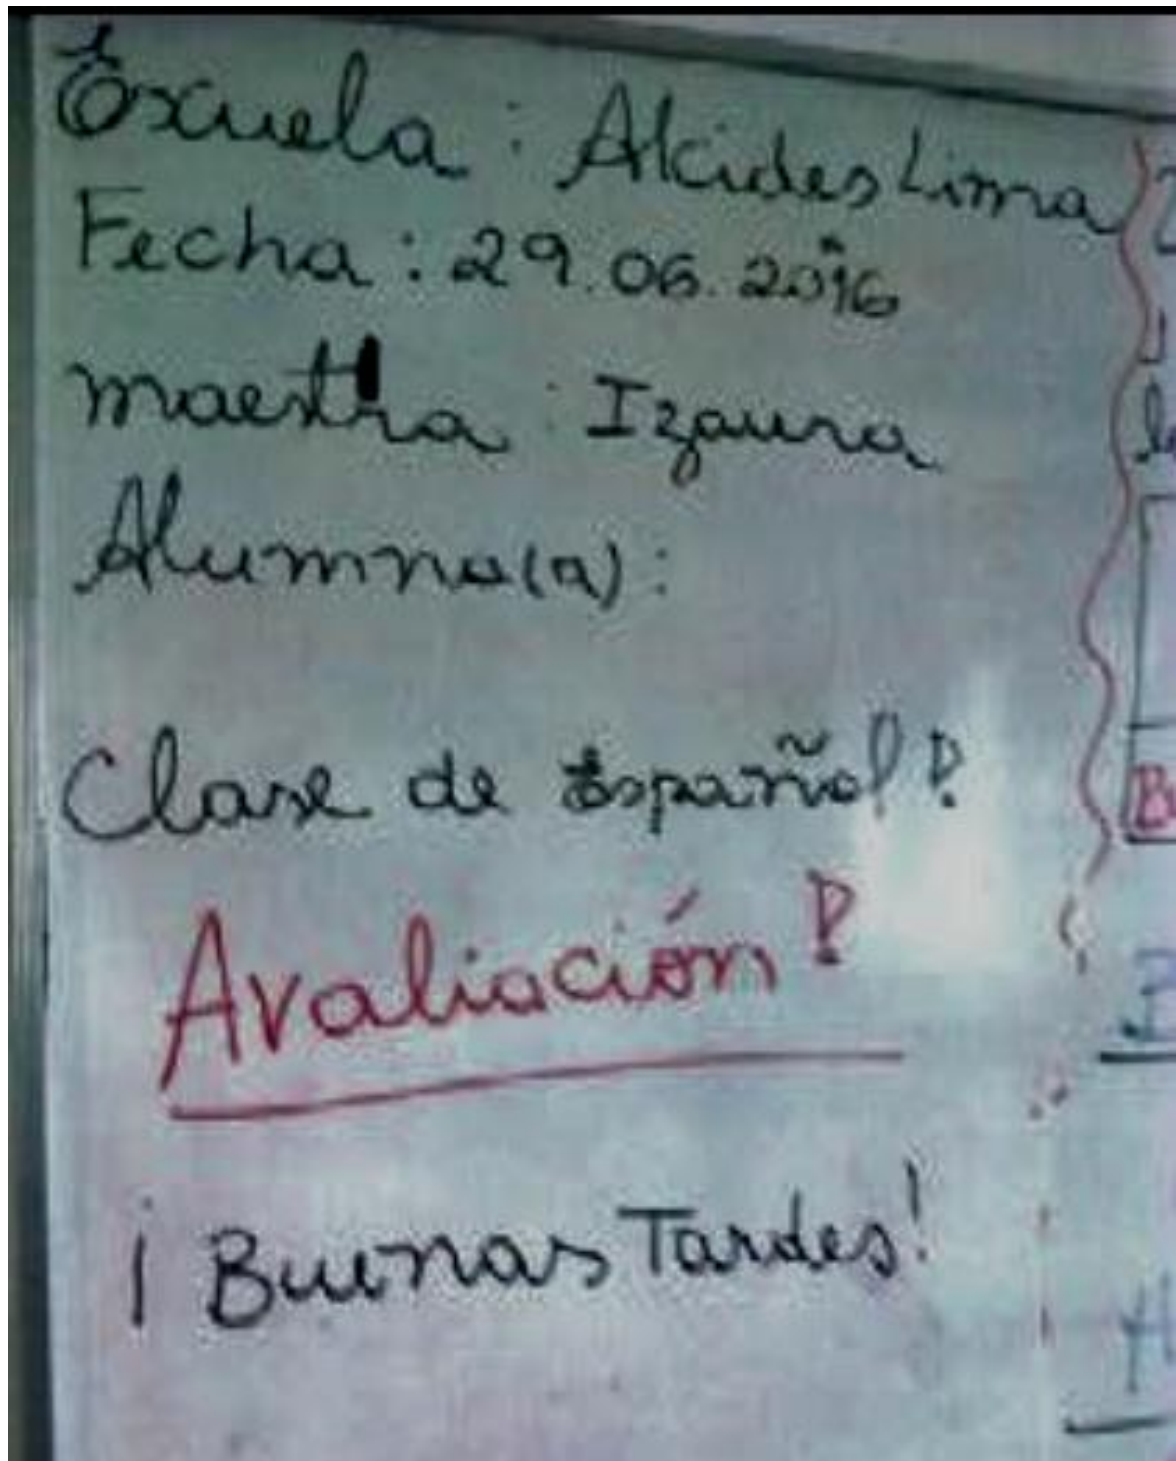 Escuela: Alcides Lima
Fecha: 29.06.2016
Maestra: Izaura
Alumno(a):
Clase de Español!
Avaliación!
¡Buenas Tardes!